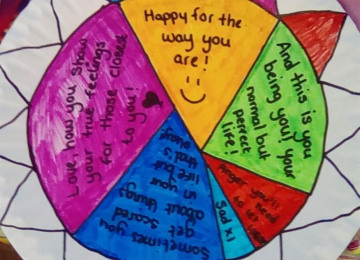 Happy for the
way you
are!
And this is you
being you! your
normal but
perfect
life!
Anger you'll
need
to let
Sad x1
Sometimes you
get scared
about things
in your
life but
that's
okay!
Love, how you show
your true feelings
for those closest
to you!